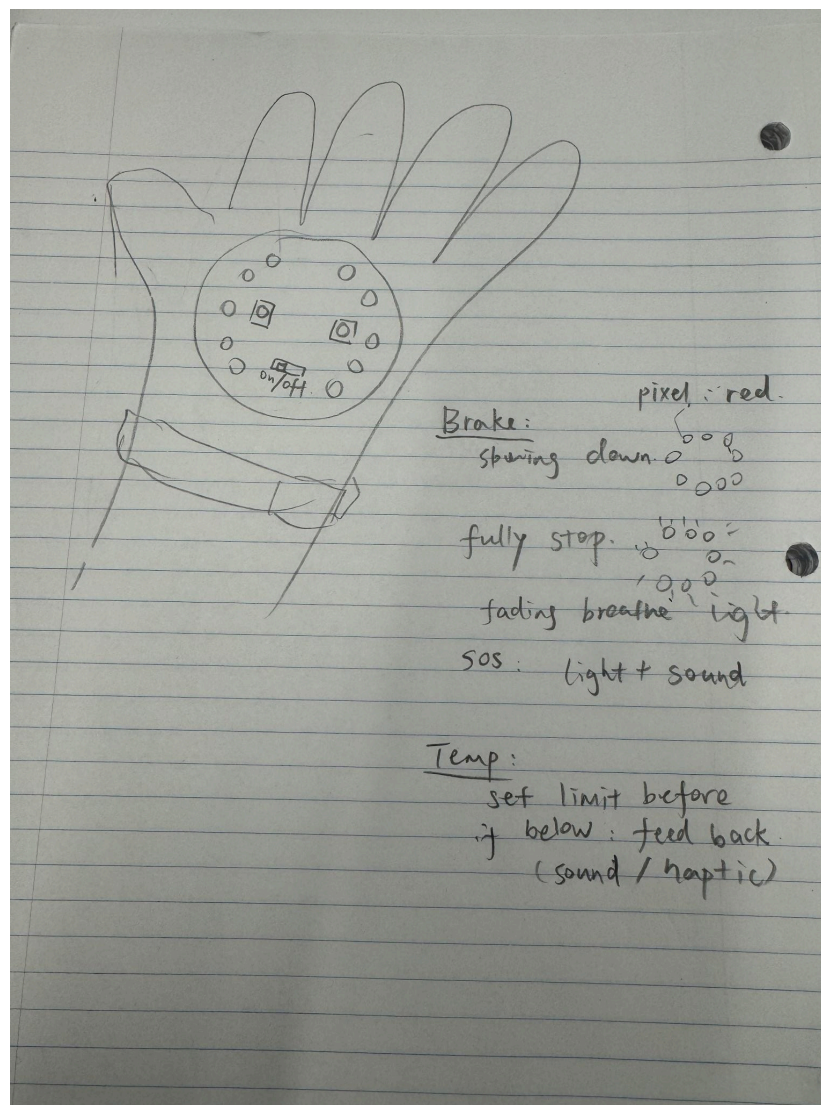 on/off
pixel : red.
Brake:
down.
fully stop.
fading breathe light.
SOS: light + sound
Temp:
set limit before
if below: feed back
(sound / haptic)